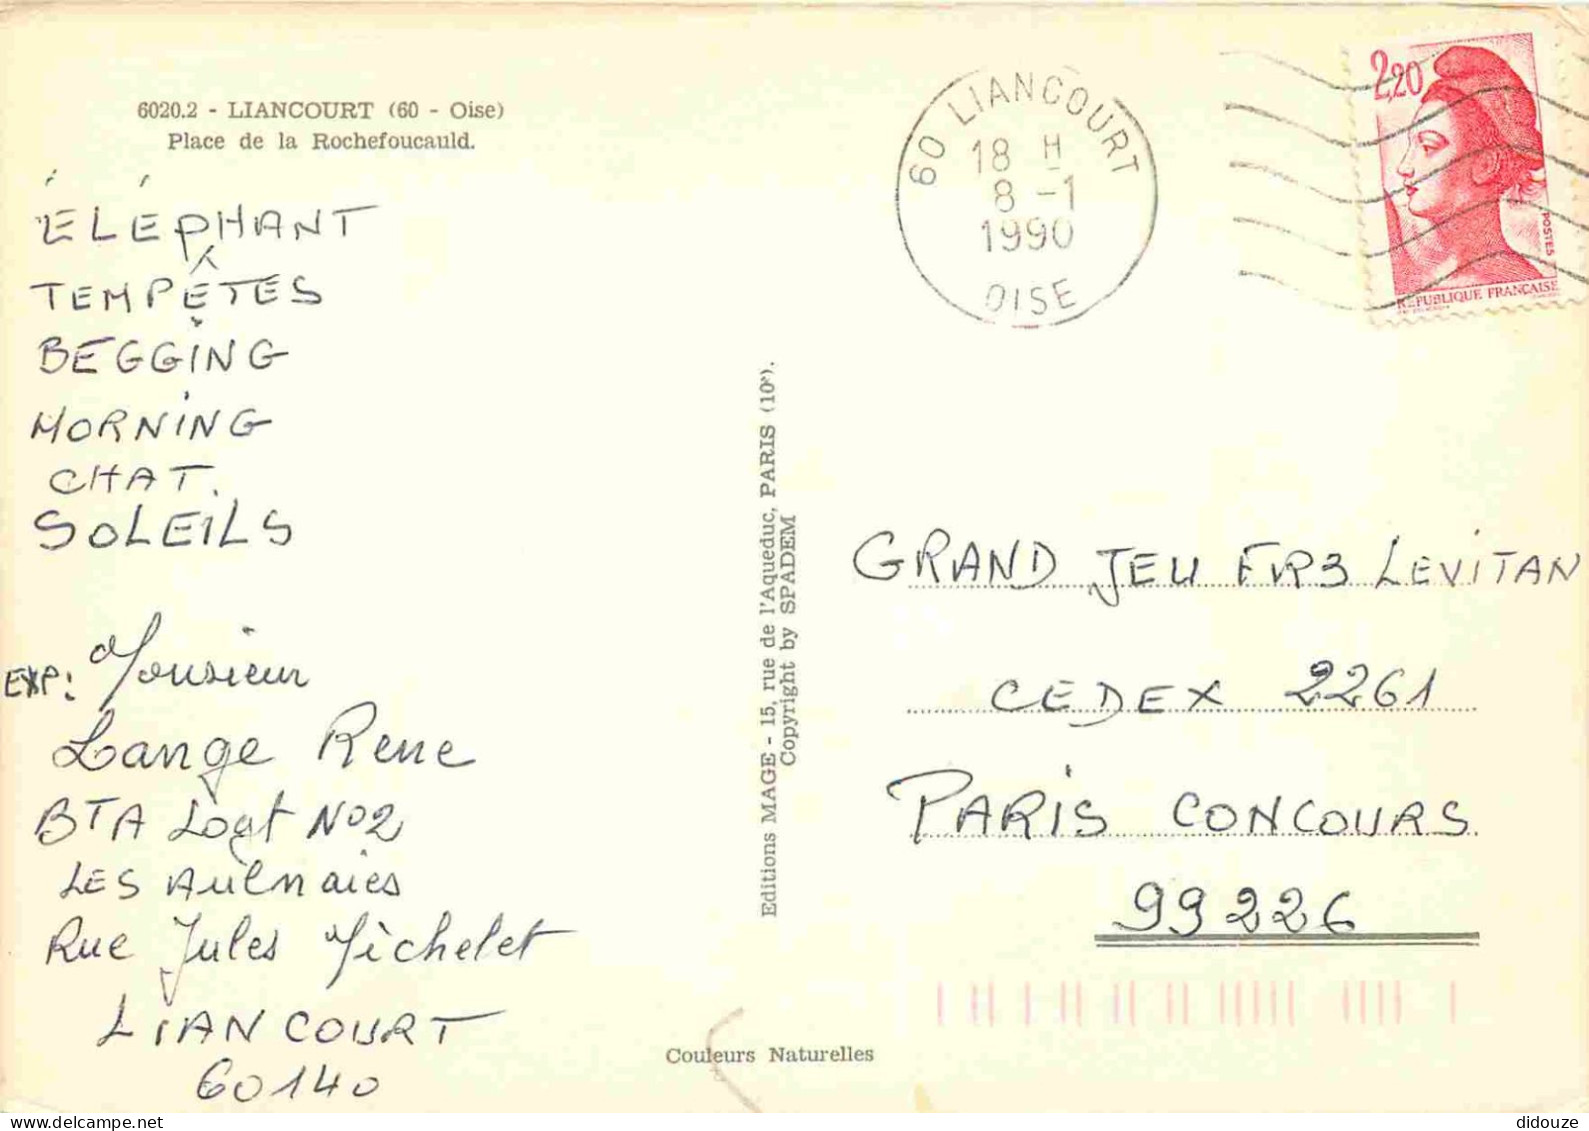 6020.2 - LIANCOURT (60 - Oise)
Place de la Rochefoucauld.
ÉLÉPHANT
TEMPÊTES
BEGGING
MORNING
CHAT.
SOLEILS
EXP: Monsieur
Lange Rene
BTA Logt No2
LES Aulnaies
Rue Jules Michelet
LIANCOURT
60140
Editions MAGE - 15, rue de l'Aqueduc, PARIS (10e).
Copyright by SPADEM
Couleurs Naturelles
60 LIANCOURT
18 H
8 - 1
1990
OISE
2,20
POSTES
REPUBLIQUE FRANÇAISE
GRAND JEU FR3 LEVITAN
CEDEX 2261
PARIS CONCOURS
99226
didouze